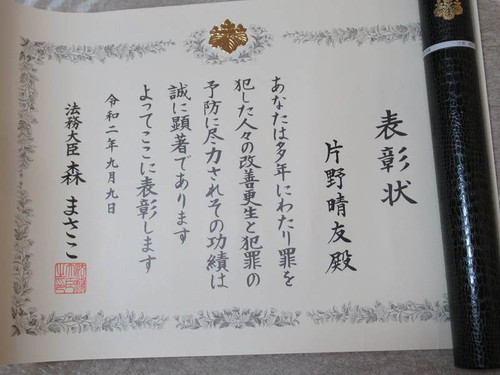 表彰状
片野晴友殿
あなたは多年にわたり罪を
犯した人々の改善更生と犯罪の
予防に尽力されその功績は
誠に顕著であります
よってここに表彰します
令和二年九月九日
法務大臣 森 まさこ